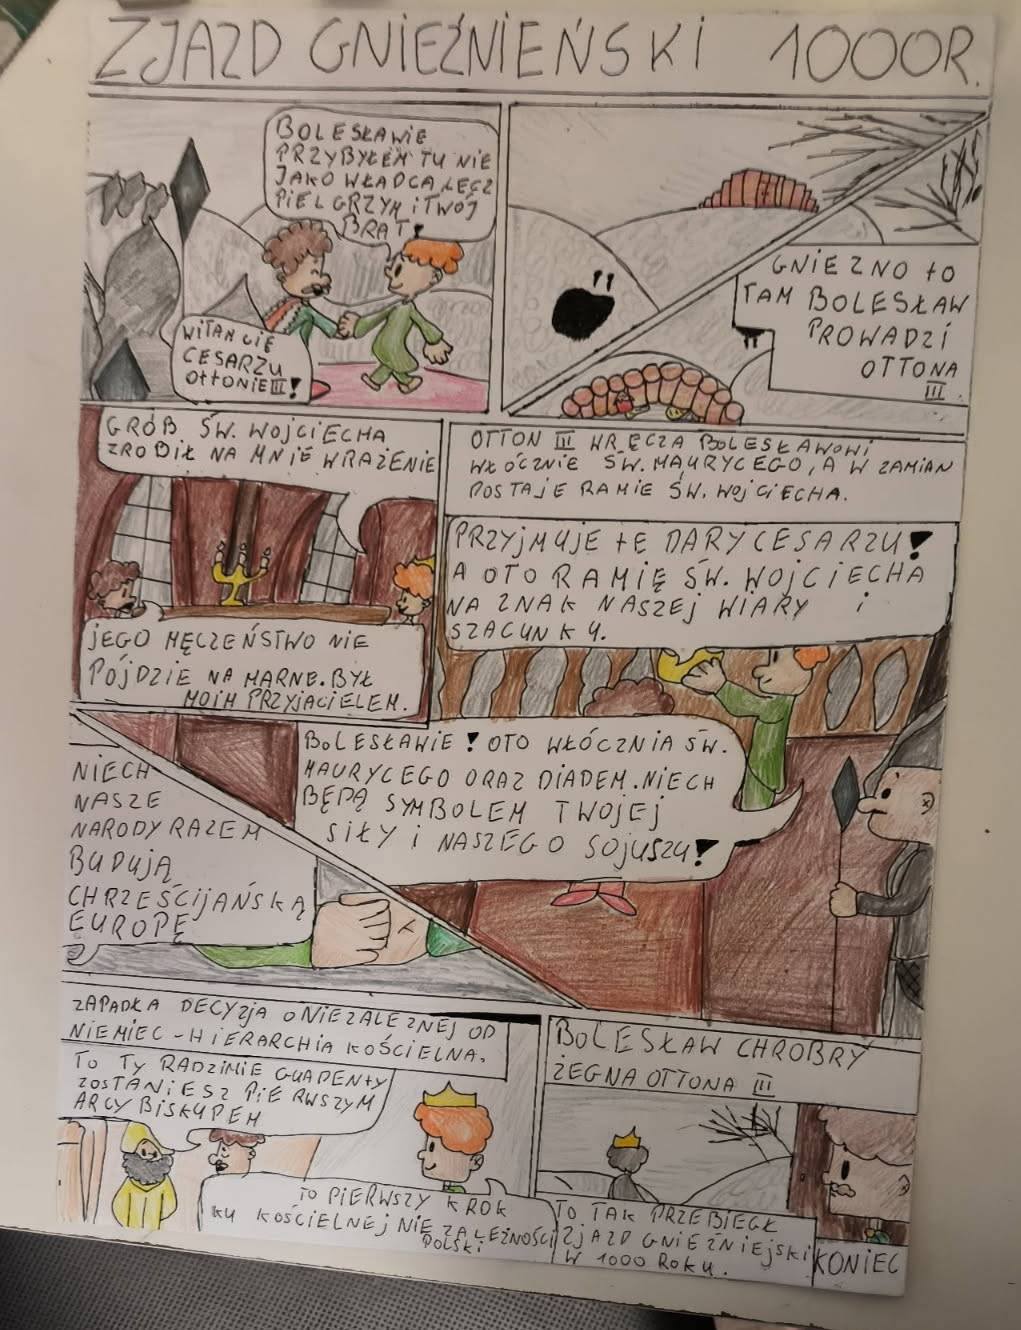 ZJAZD GNIEŹNIEŃSKI 1000R.
BOLESŁAWIE
PRZYBYŁEM TU NIE
JAKO WŁADCA LECZ
PIELGRZYM i TWÓJ
BRAT!
WITAM CIĘ
CESARZU
OttONIE III!
GNIEZNO tO
TAM BOLESŁAW
PROWADZI
OTTONA
III
GRÓB ŚW. WOJCIECHA
ZROBIŁ NA MNIE WRAŻENIE
JEGO MĘCZEŃSTWO NIE
PÓJDZIE NA MARNE. BYŁ
MOIM PRZYJACIELEM.
OTTON III WRĘCZA BOLESŁAWOWI
WŁÓCZNIE ŚW. MAURYCEGO, A W ZAMIAN
DOSTAJE RAMIE ŚW. WOJCIECHA.
PRZYJMUJE tE DARY CESARZU!
A OTO RAMIĘ ŚW. WOJCIECHA
NA ZNAK NASZEJ WIARY i
SZACUNKU.
BOLESŁAWIE! OTO WŁÓCZNIA ŚW.
MAURYCEGO ORAZ DIADEM. NIECH
BĘDĄ SYMBOLEM TWOJEJ
SIŁY i NASZEGO SOJUSZU!
NIECH
NASZE
NARODY RAZEM
BUDUJĄ
CHRZEŚCIJAŃSKĄ
EUROPĘ
ZAPADŁA DECYZJA O NIEZALEZNEJ OD
NIEMIEC - HIERARCHIA KOŚCIELNA.
TO TY RADZIMIE GUADENTY
ZOSTANIESZ PIERWSZYM
ARCYBISKUPEM
TO PIERWSZY KROK
KU KOŚCIELNEJ NIEZALEŻNOŚCI
POLSKI
BOLESŁAW CHROBRY
ŻEGNA OTTONA III
TO TAK PRZEBIEGŁ
ZJAZD GNIEŹNIEJSKI
W 1000 ROKU.
KONIEC